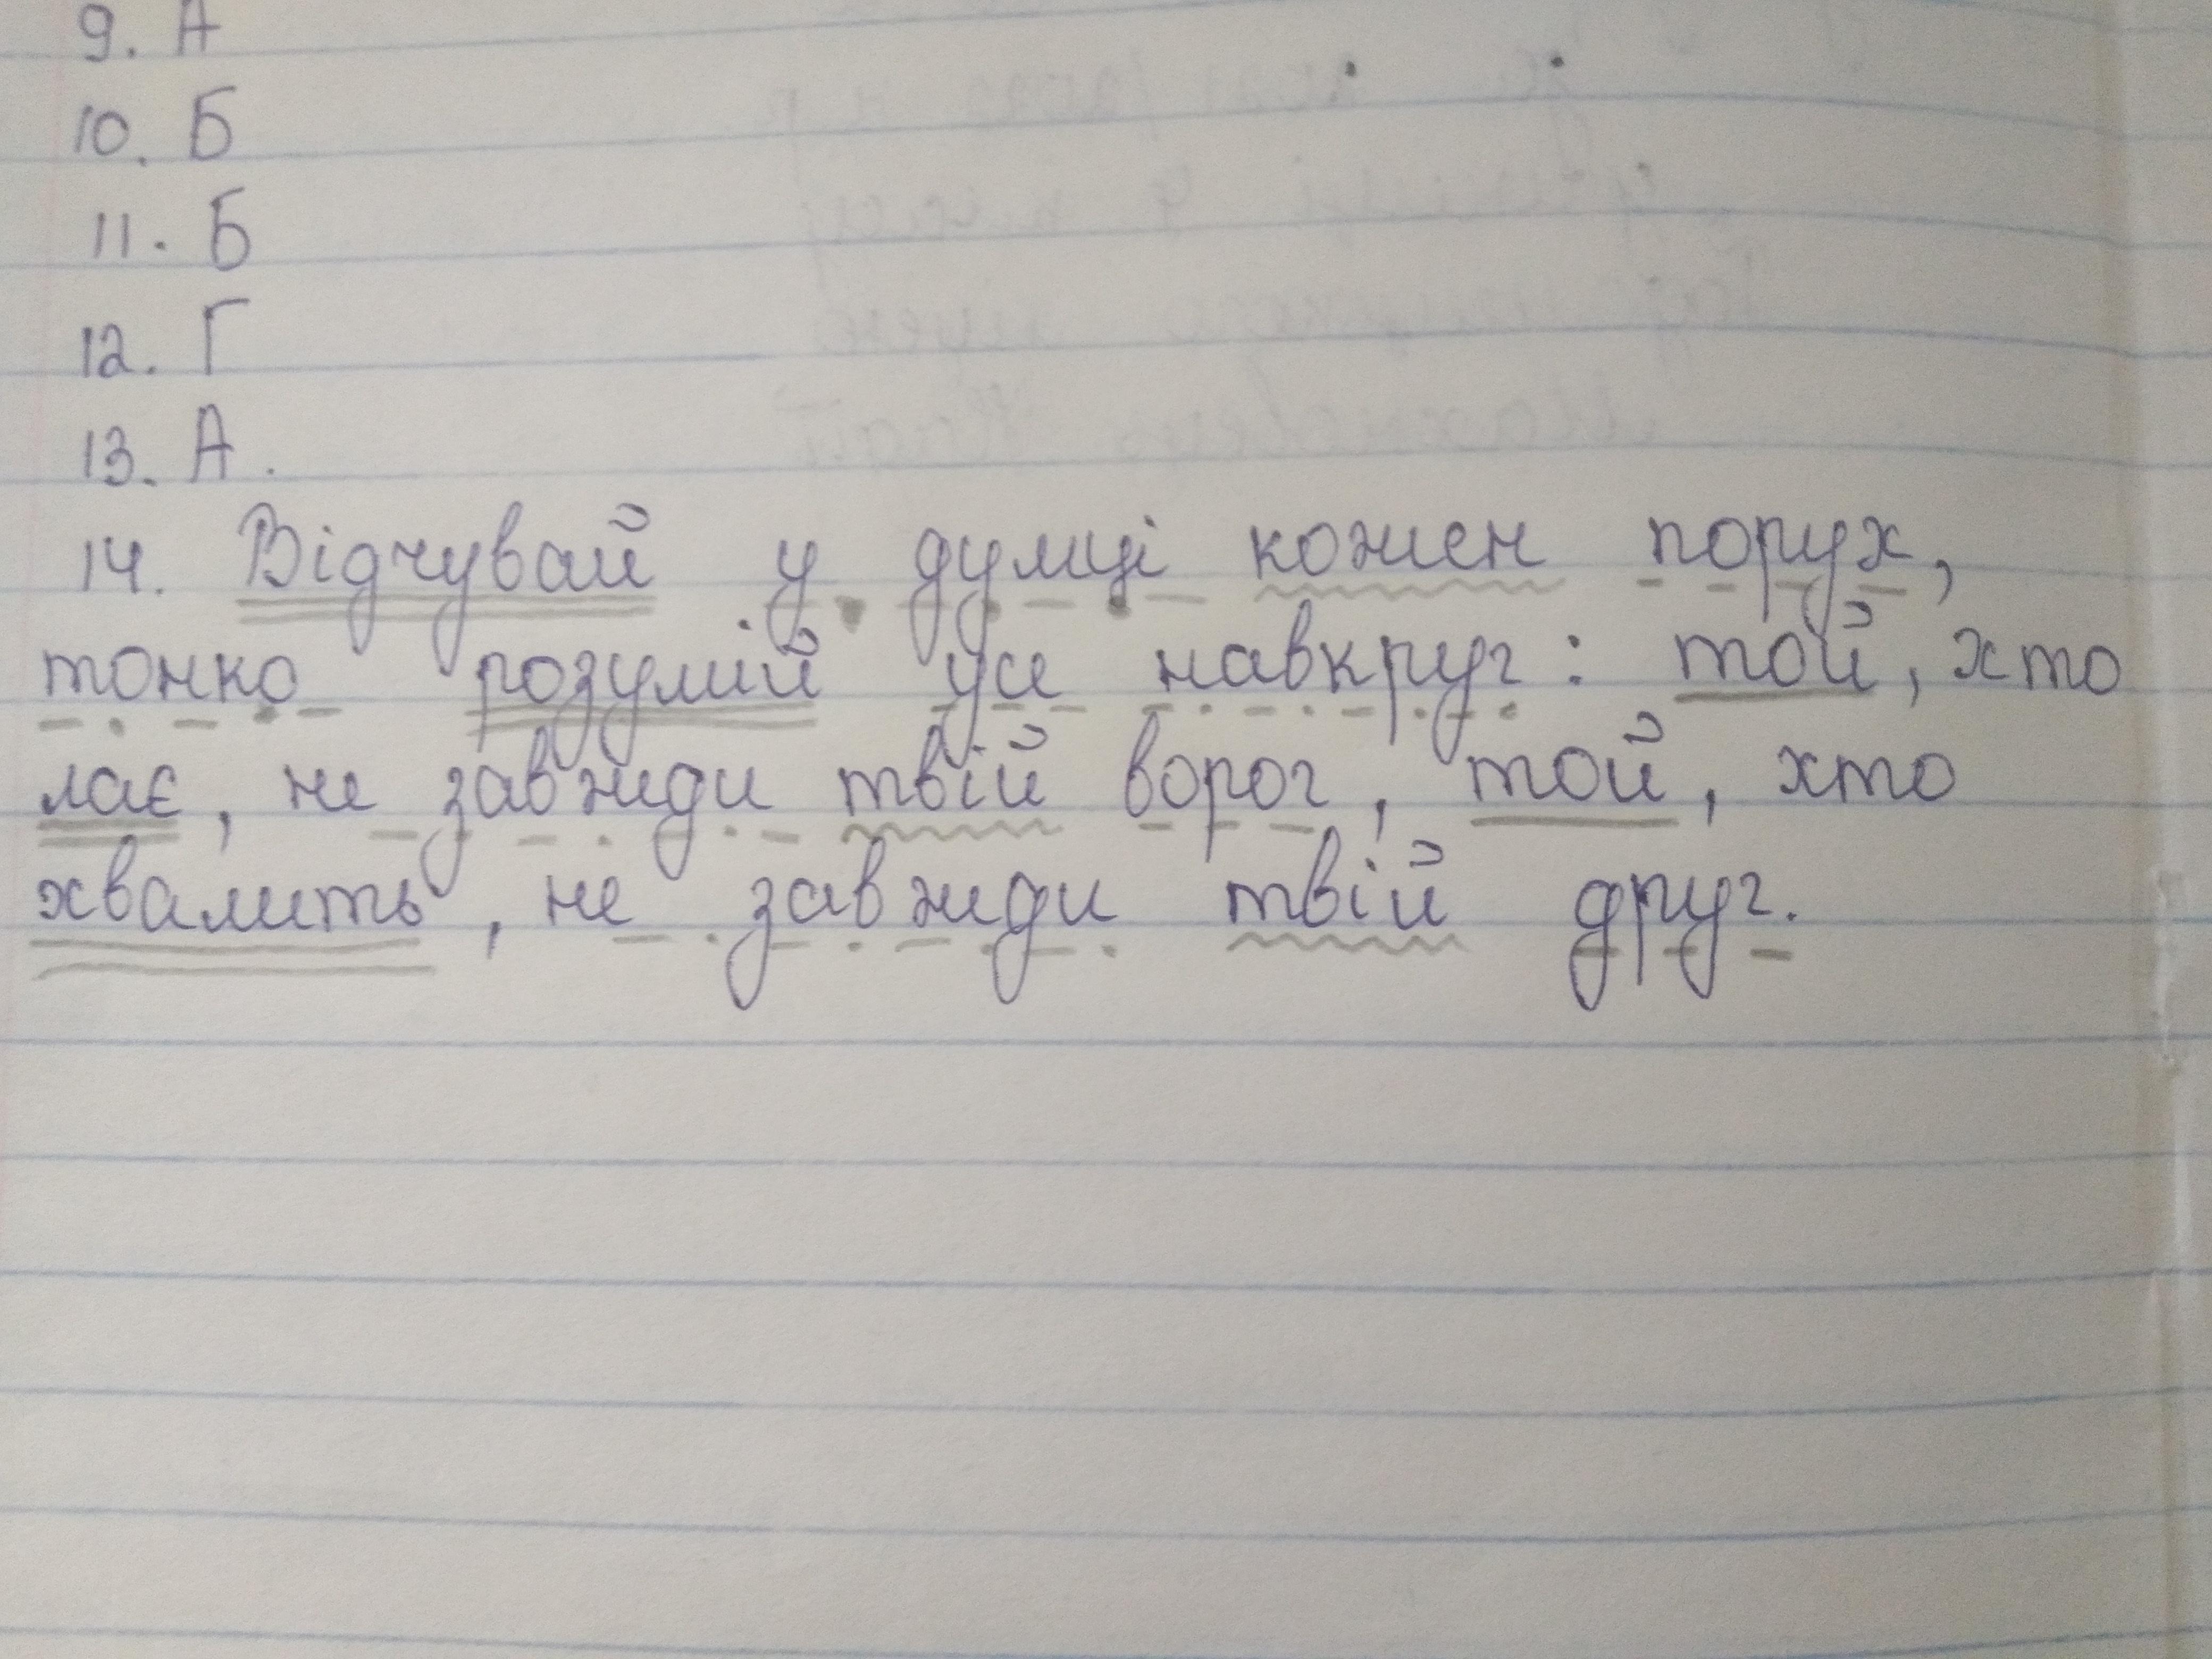 9. А
10. Б
11. Б
12. Г
13. А.
14. Відчувай у думці кожен порух,
тонко розумій усе навкруг: той, хто
лає, не завжди твій ворог, той, хто
хвалить, не завжди твій друг.